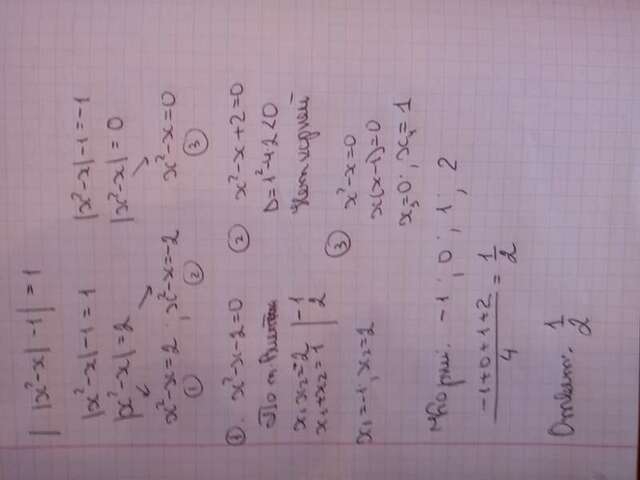 | |x²-x| -1 | = 1
|x²-x| -1 = 1
|x²-x| -1 = -1
|x²-x| = 2
|x²-x| = 0
x²-x=2 ; x²-x=-2
x²-x=0
①
②
③
①. x²-x-2=0
По т. Виета
x₁x₂=-2 | -1
x₁+x₂=1 | 2
x₁=-1; x₂=2
② x²-x+2=0
D=1²-4·2<0
Нет корней
③ x²-x=0
x(x-1)=0
x₃=0; x₄=1
Корни: -1 ; 0 ; 1 ; 2
-1+0+1+2 / 4 = 1/2
Ответ: 1/2